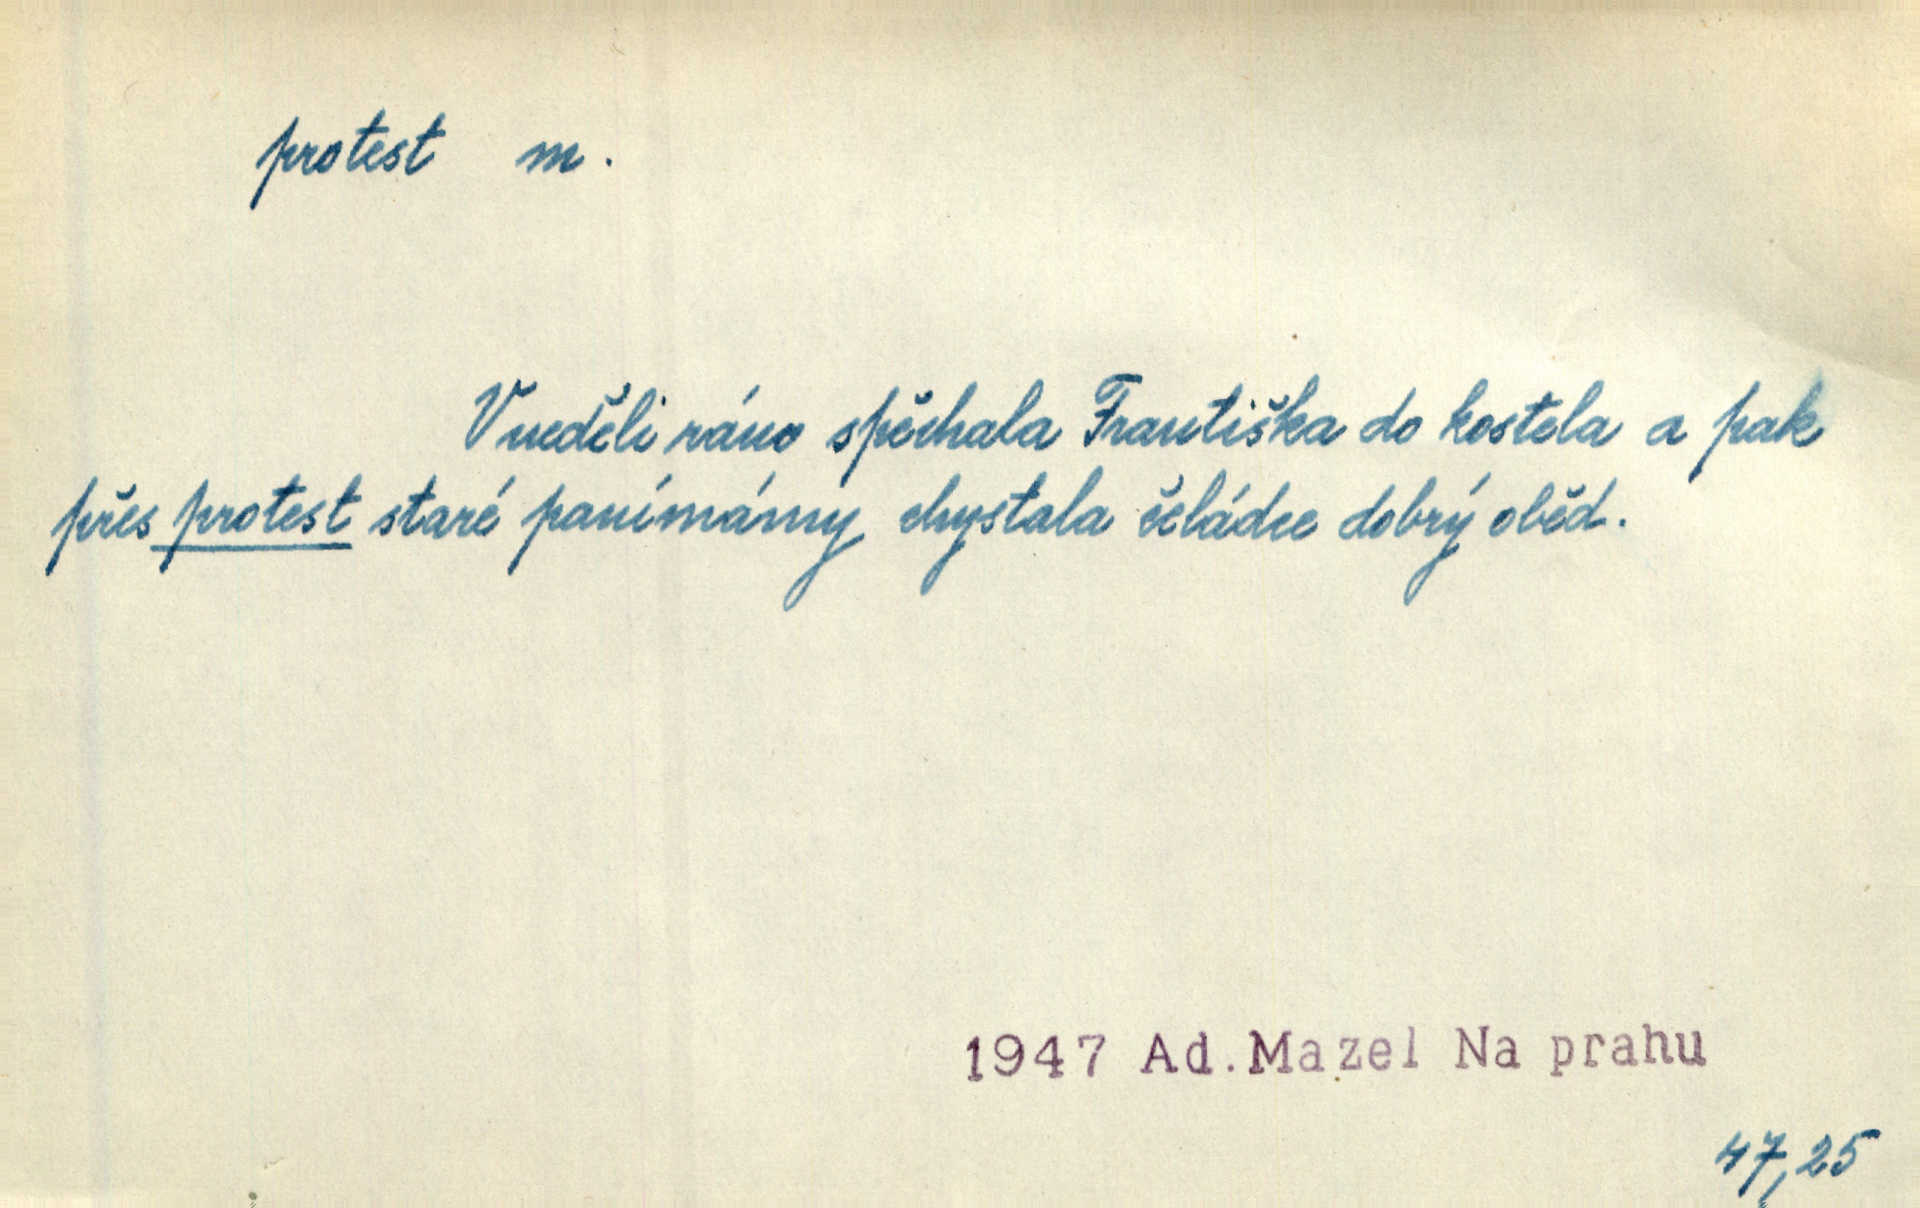 protest m.
V neděli ráno spěchala Františka do kostela a pak
přes protest staré panímámy chystala čeládce dobrý oběd.
1947 Ad. Mazel Na prahu
47,25